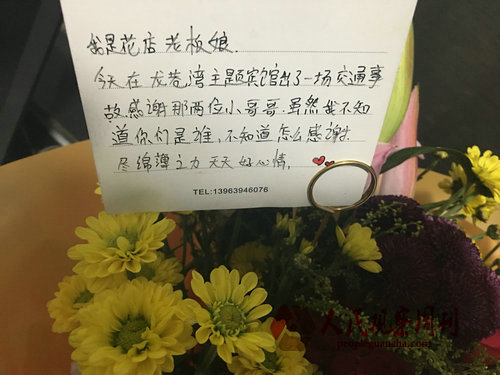 我是花店老板娘.
今天在龙巷湾主题宾馆出了一场交通事
故.感谢那两位小哥哥.虽然我不知
道你们是谁,不知道怎么感谢.
尽绵薄之力天天好心情.
TEL:13963946076
人民观察周刊